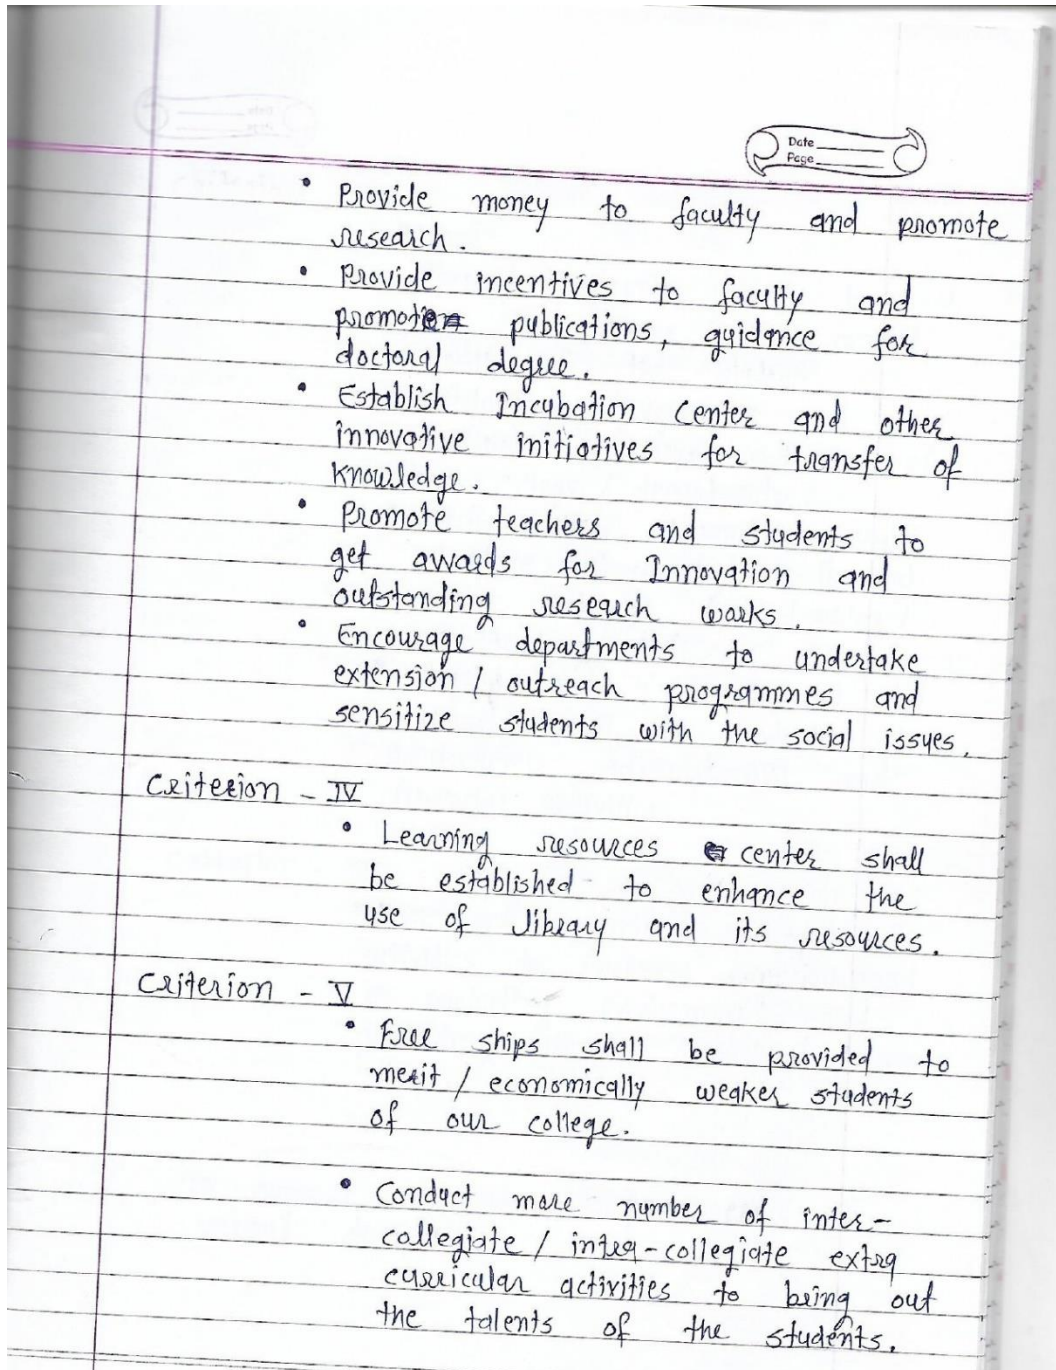 Date
Page
• Provide money to faculty and promote
research.
• Provide incentives to faculty and
promote publications, guidance for
doctoral degree.
• Establish Incubation Center and other
innovative initiatives for transfer of
knowledge.
• Promote teachers and students to
get awards for Innovation and
outstanding research works.
• Encourage departments to undertake
extension / outreach programmes and
sensitize students with the social issues.
Criterion - IV
• Learning resources center shall
be established to enhance the
use of library and its resources.
Criterion - V
• Free ships shall be provided to
merit / economically weaker students
of our college.
• Conduct more number of inter-
collegiate / intra-collegiate extra
curricular activities to being out
the talents of the students.